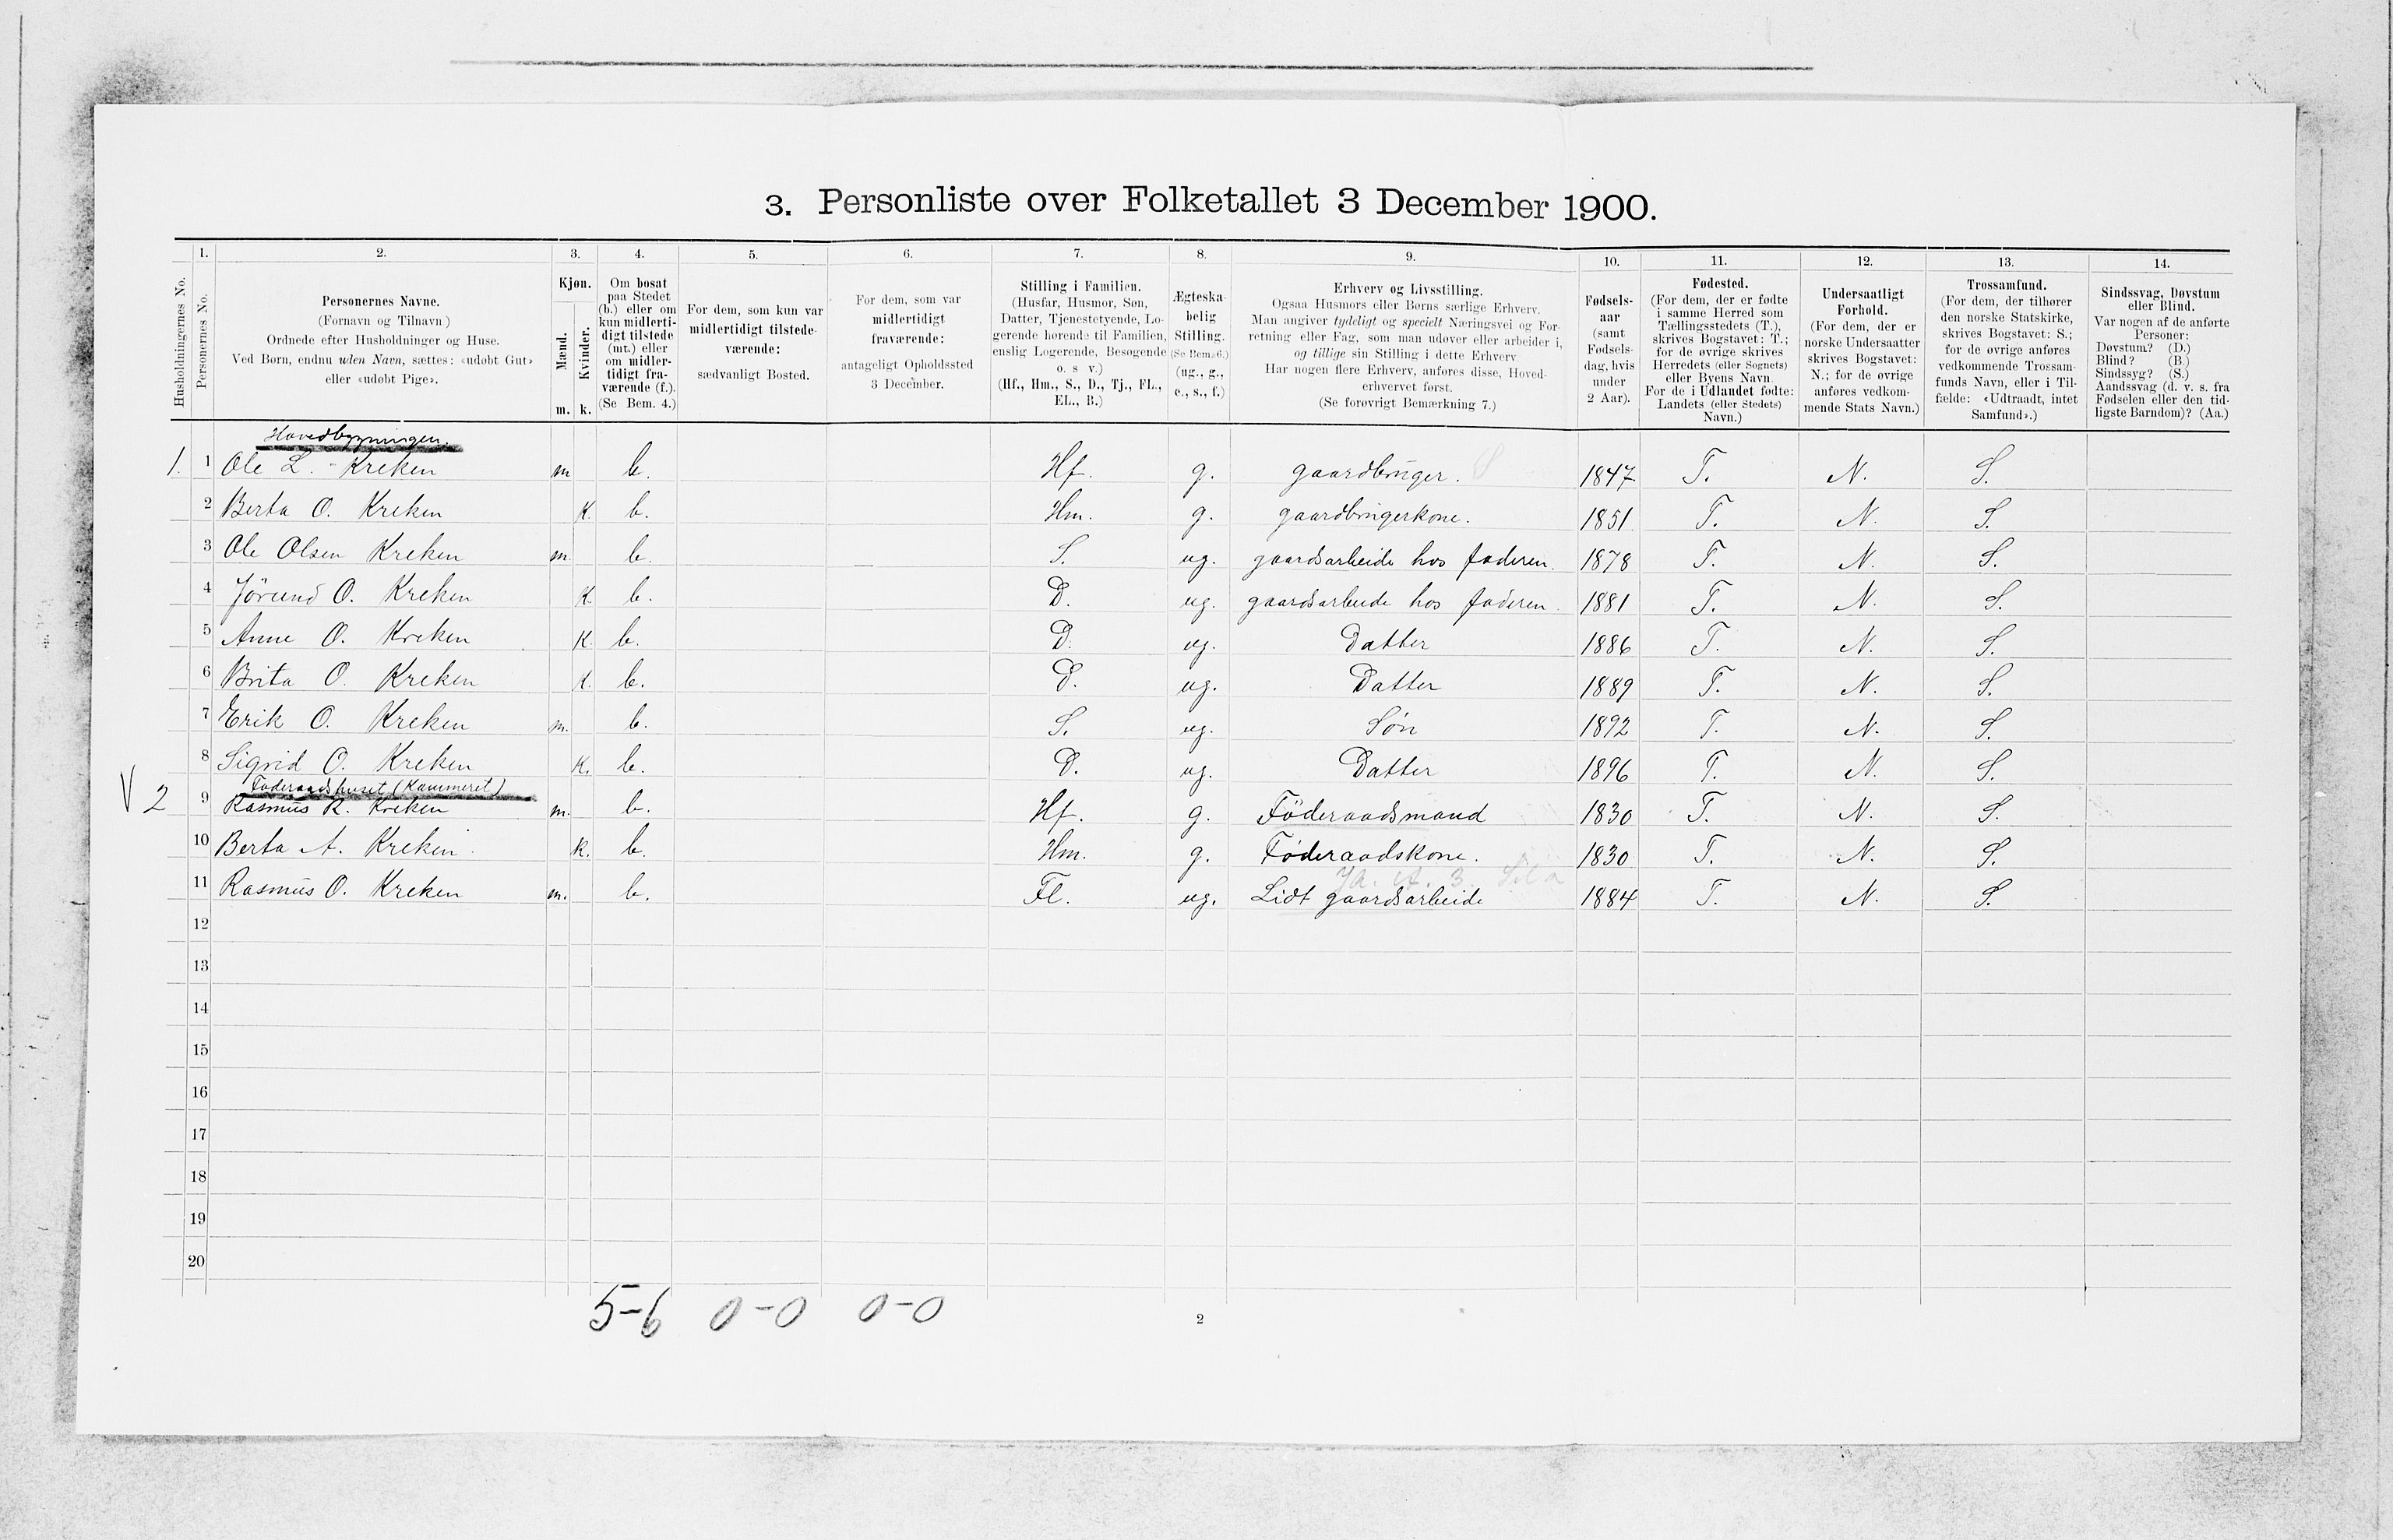 3. Personliste over Folketallet 3 December 1900.
1. 2. 3. 4. 5. 6. 7. 8. 9. 10. 11. 12. 13. 14.
Husholdningernes No.
Personernes No.
Personernes Navne.
(Fornavn og Tilnavn)
Ordnede efter Husholdninger og Huse.
Ved Børn, endnu uden Navn, sættes: «udøbt Gut»
eller «udøbt Pige».
Kjøn.
Mænd.
Kvinder.
m. k.
Om bosat
paa Stedet
(b.) eller om
kun midlerti-
digt tilstede
(mt.) eller
om midler-
tidigt fra-
værende (f.).
(Se Bem. 4.)
For dem, som kun var
midlertidigt tilstede-
værende:
sædvanligt Bosted.
For dem, som var
midlertidigt
fraværende:
antageligt Opholdssted
3 December.
Stilling i Familien.
(Husfar, Husmor, Søn,
Datter, Tjenestetyende, Lo-
gerende hørende til Familien,
enslig Logerende, Besøgende
o. s v.)
(Hf., Hm., S., D., Tj., FL.,
EL., B.)
Ægteska-
belig
Stilling.
(Se Bem. 6.)
(ug., g.,
e., s., f.)
Erhverv og Livsstilling.
Ogsaa Husmors eller Børns særlige Erhverv.
Man angiver tydeligt og specielt Næringsvei og For-
retning eller Fag, som man udøver eller arbeider i,
og tillige sin Stilling i dette Erhverv
Har nogen flere Erhverv, anføres disse, Hoved-
erhvervet først.
(Se forøvrigt Bemærkning 7.)
Fødsels-
aar
(samt
Fødsels-
dag, hvis
under
2 Aar).
Fødested.
(For dem, der er fødte
i samme Herred som
Tællingsstedets (T.),
skrives Bogstavet: T.;
for de øvrige skrives
Herredets (eller Sognets)
eller Byens Navn
For de i Udlandet fødte:
Landets (eller Stedets)
Navn.)
Undersaatligt
Forhold.
(For dem, der er
norske Undersaatter
skrives Bogstavet:
N.; for de øvrige
anføres vedkom-
mende Stats Navn.)
Trossamfund.
(For dem, der tilhører
den norske Statskirke,
skrives Bogstavet: S.;
for de øvrige anføres
vedkommende Trossam-
funds Navn, eller i Til-
fælde: «Udtraadt, intet
Samfund».)
Sindssvag, Døvstum
eller Blind.
Var nogen af de anførte
Personer:
Døvstum? (D.)
Blind? (B)
Sindssyg? (S.)
Aandssvag (d. v. s. fra
Fødselen eller den tid-
ligste Barndom)? (Aa.)
Hovedbygningen.
1. 1 Ole L. Kreken m b. Hf. g. gaardbruger. 1847 T. N. S.
2 Berta O. Kreken K. b. Hm. g. gaardbrugerkone. 1851 T. N. S.
3 Ole Olsen Kreken m b. S. ug. gaardsarbeide hos faderen. 1878 T. N. S.
4 Jörund O. Kreken K b. D. ug. gaardsarbeide hos faderen. 1881 T. N. S.
5 Anne O. Kreken K. b. D. ug. Datter 1886 T. N. S.
6 Brita O. Kreken K. b. D. ug. Datter 1889 T. N. S.
7 Erik O. Kreken m. b. S. ug. Søn 1892 T. N. S.
8 Sigrid O. Kreken K. b. D. ug. Datter 1896 T. N. S.
Föderaadshuset (Kammeret)
V 2 9 Rasmus R. Kreken m. b. Hf. g. Föderaadsmand 1830 T. N. S.
10 Berta A. Kreken K. b. Hm. g. Föderaadskone. 1830 T. N. S.
11 Rasmus O. Kreken m. b. Fl. ug. Lidt gaardsarbeide 1884 T. N. S.
12
13
14
15
16
17
18
19
20
5-6 0-0 0-0
2